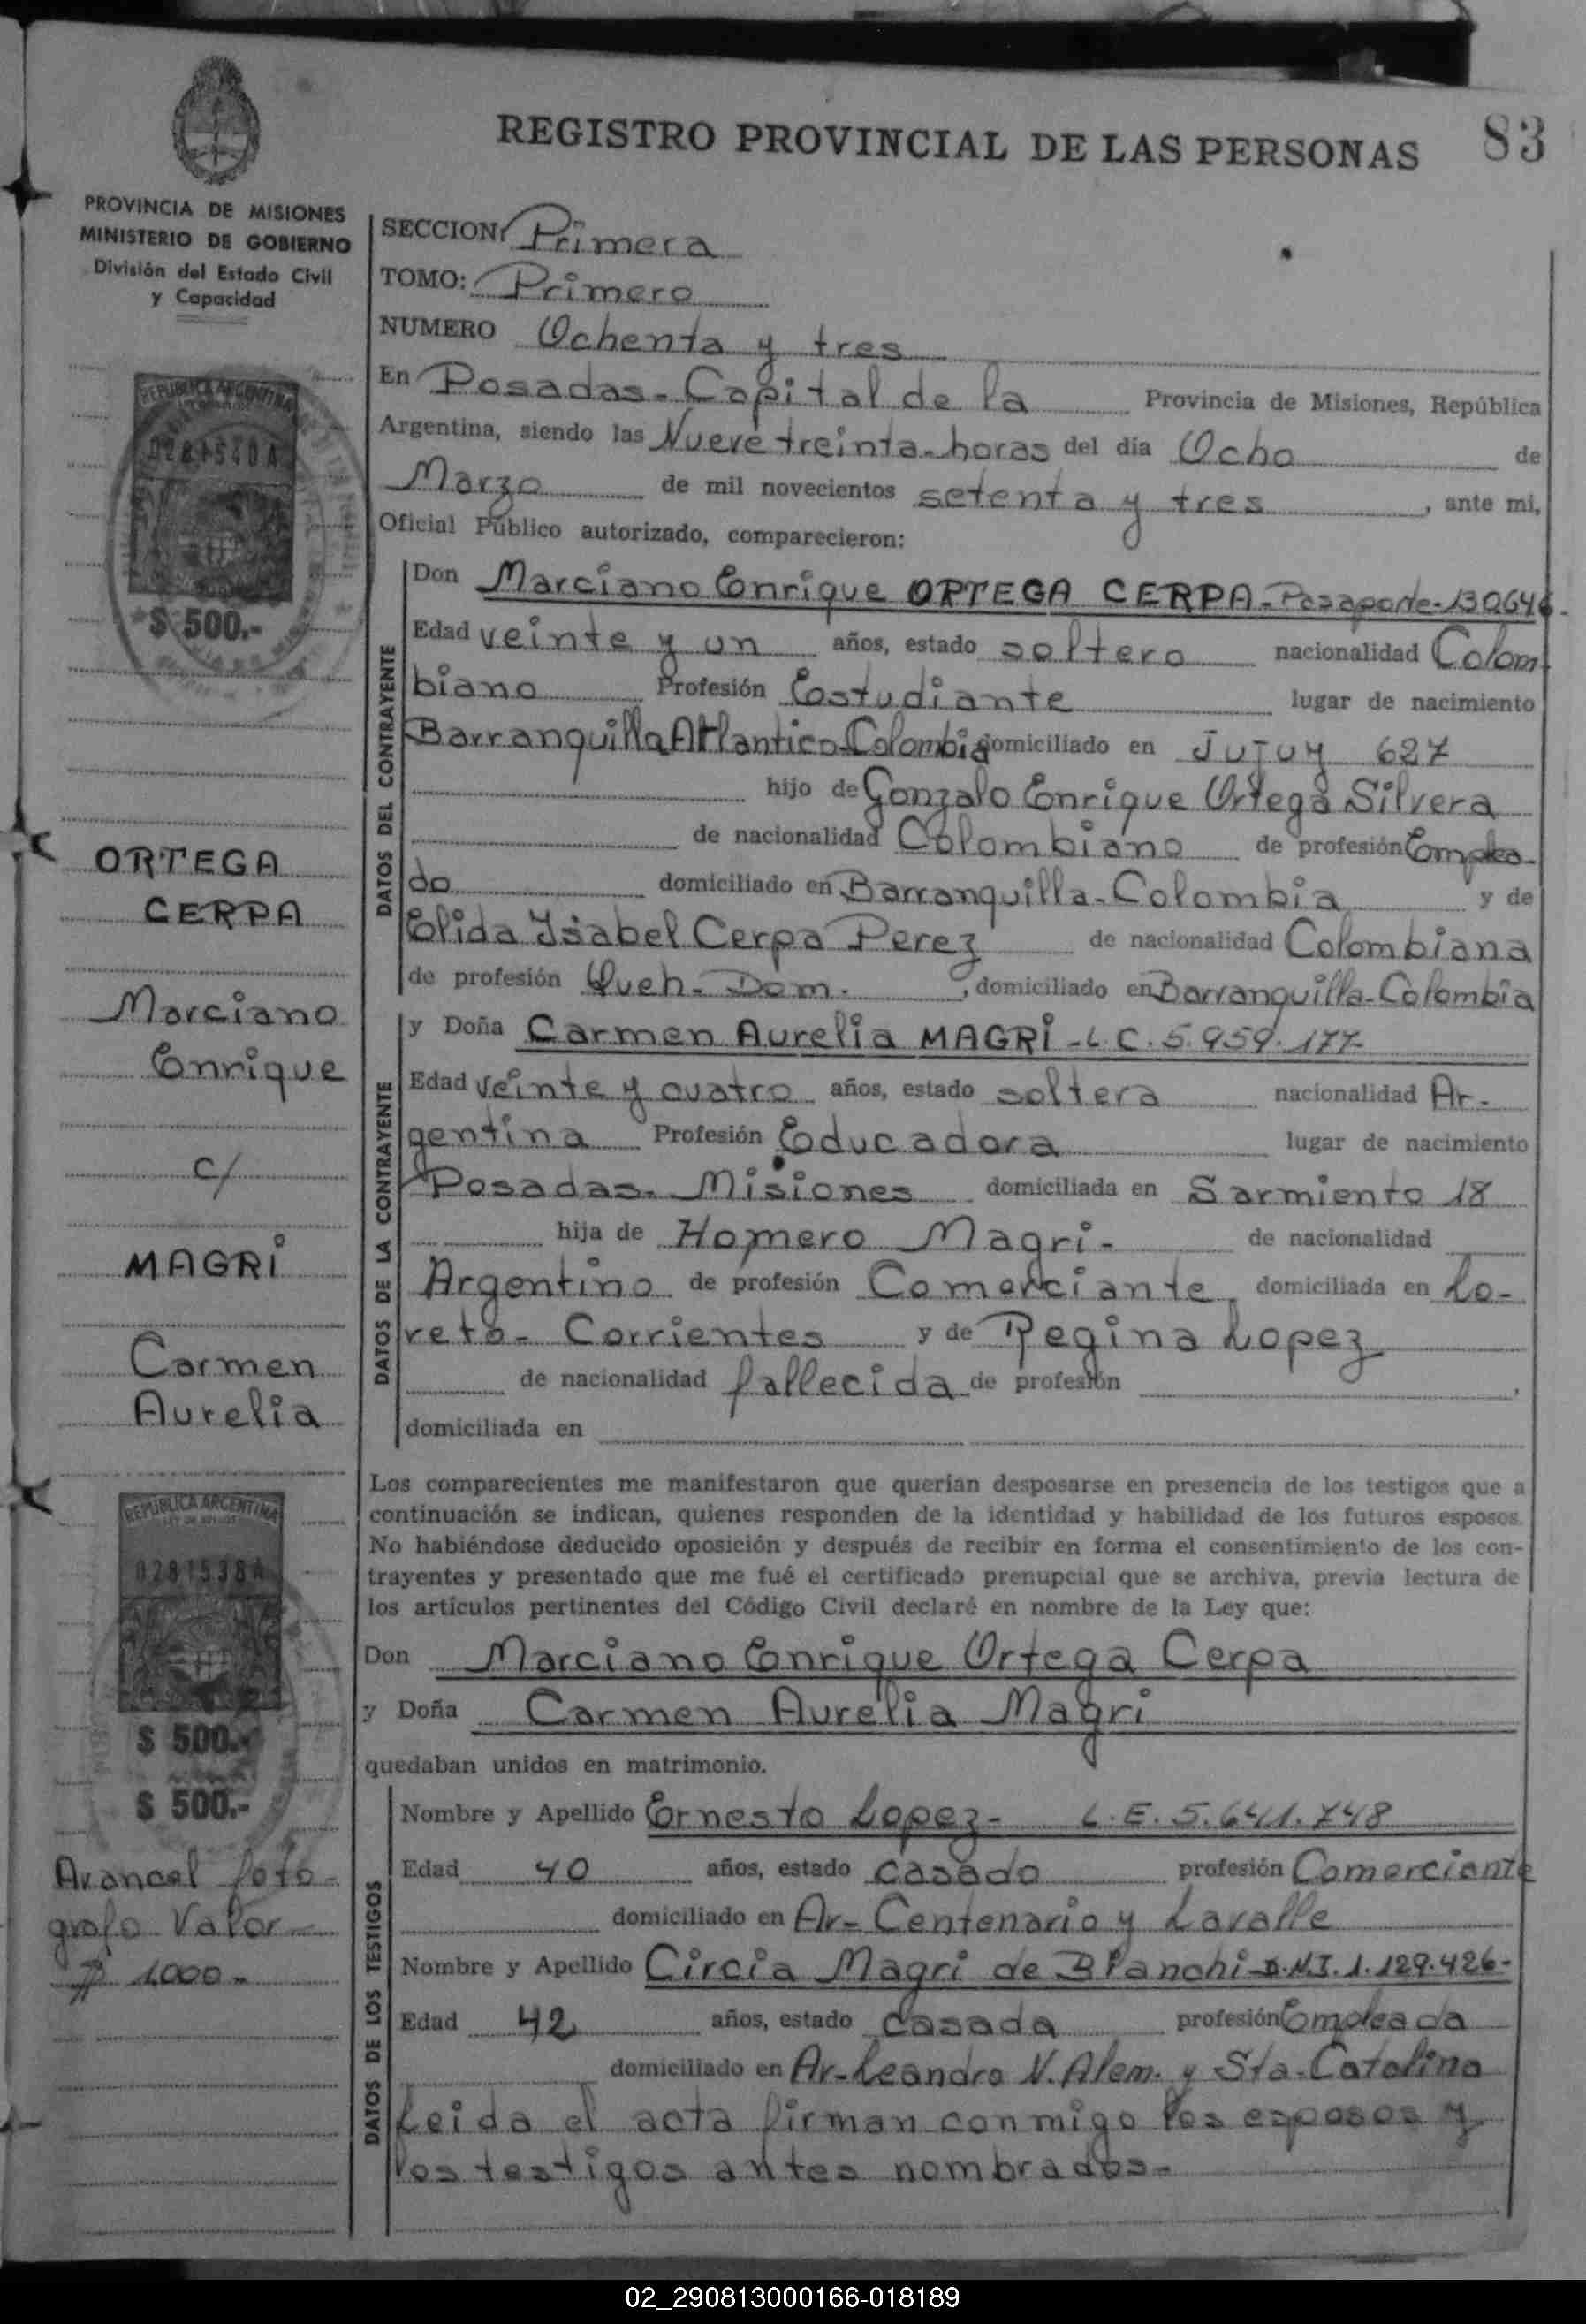 REGISTRO PROVINCIAL DE LAS PERSONAS 83
PROVINCIA DE MISIONES
MINISTERIO DE GOBIERNO
División del Estado Civil
y Capacidad
SECCION: Primera
TOMO: Primero
NUMERO Ochenta y tres
En Posadas - Capital de la Provincia de Misiones, República
Argentina, siendo las Nueve treinta - horas del día Ocho de
Marzo de mil novecientos setenta y tres, ante mi,
Oficial Público autorizado, comparecieron:
REPUBLICA ARGENTINA
$ 500.-
DATOS DEL CONTRAYENTE
Don Marciano Enrique ORTEGA CERPA - Pasaporte - 130646 -
Edad veinte y un años, estado soltero nacionalidad Colom
biano Profesión Estudiante lugar de nacimiento
Barranquilla Atlantico - Colombia domiciliado en Jujuy 627
hijo de Gonzalo Enrique Ortega Silvera
de nacionalidad Colombiano de profesión Emplea-
do domiciliado en Barranquilla - Colombia y de
Elida Isabel Cerpa Perez de nacionalidad Colombiana
de profesión Queh. Dom. , domiciliado en Barranquilla - Colombia
ORTEGA
CERPA
Marciano
Enrique
c/
MAGRI
Carmen
Aurelia
DATOS DE LA CONTRAYENTE
y Doña Carmen Aurelia MAGRI - L.C. 5.959.177-
Edad veinte y cuatro años, estado soltera nacionalidad Ar-
gentina Profesión Educadora lugar de nacimiento
Posadas - Misiones domiciliada en Sarmiento 18
hija de Homero Magri - de nacionalidad
Argentino de profesión Comerciante domiciliada en Lo-
reto - Corrientes y de Regina Lopez
de nacionalidad fallecida de profesión ,
domiciliada en
Los comparecientes me manifestaron que querían desposarse en presencia de los testigos que a
continuación se indican, quienes responden de la identidad y habilidad de los futuros esposos.
No habiéndose deducido oposición y después de recibir en forma el consentimiento de los con-
trayentes y presentado que me fué el certificado prenupcial que se archiva, previa lectura de
los artículos pertinentes del Código Civil declaré en nombre de la Ley que:
Don Marciano Enrique Ortega Cerpa
y Doña Carmen Aurelia Magri
quedaban unidos en matrimonio.
REPUBLICA ARGENTINA
$ 500.-
$ 500.-
Arancel foto-
grafo Valor
$ 1.000 -
DATOS DE LOS TESTIGOS
Nombre y Apellido Ernesto Lopez - L.E. 5.641.748
Edad 40 años, estado casado profesión Comerciante
domiciliado en Av- Centenario y Lavalle
Nombre y Apellido Circia Magri de Bianchi - D.N.I. 1.129.426 -
Edad 42 años, estado casada profesión Empleada
domiciliado en Av- Leandro N. Alem. y Sta. Catalina
Leida el acta firman conmigo los esposos y
los testigos antes nombrados -
02_290813000166-018189